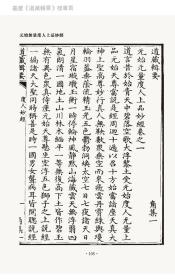 《道藏輯要》
道藏輯要
角集一
元始無量度人上品妙經卷之一
道言昔於始青天中碧落空歌大浮黎土受元始度人無量上品
元始天尊當說是經周迴十過以召十方始當詣座天真大
神上聖高尊妙行真人無鞅數眾乘空而來飛雲丹霄綠輿瓊
輪羽蓋垂蔭流精玉光五色鬱勃洞煥太空七日七夜諸天日
月星宿璇璣玉衡一時停輪神風靜默山海藏雲天無浮翳四
氣朗清一國地土山川林木緬平一等無復高下土皆作碧玉
無有異色眾真侍座元始天尊玄坐空浮五色獅子之上說經
一遍諸天大聖同時稱善是時一國男女聾病耳皆開聰說經
道藏輯要
度人妙經
角集一
- 105 -